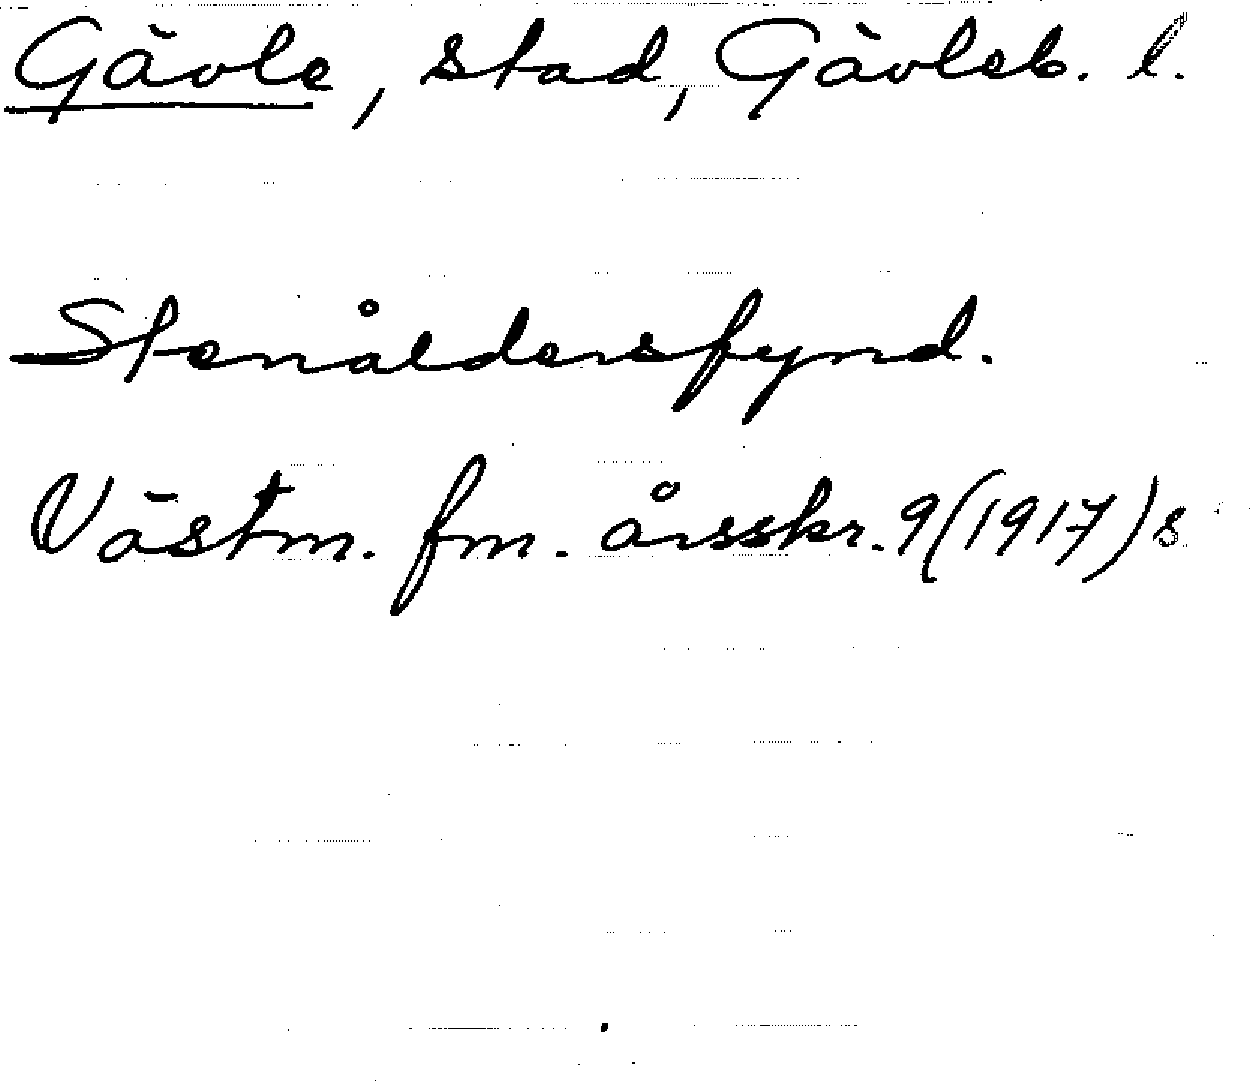 Gävle, stad, Gävleb. l.
Stenåldersfynd.
Västm. fm. årsskr. 9 (1917) s